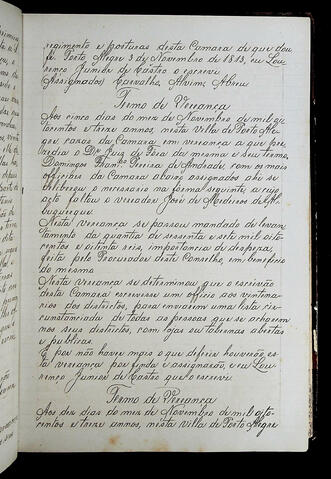 regimento e posturas desta Camara de que dou
fé. Porto Alegre 3 de Novembro de 1813, eu Lou-
renço Junior de Castro o escrevi
Assignados) Carvalho, Alvim, Abreu
Termo de Vereança
Aos cinco dias do mez de Novembro de mil oi-
tocentos e treze annos, nesta Villa de Porto Ale-
gre casas da Camara em vereança a que pre-
sedio o Dr. Juiz de Fora da mesma e seu termo,
Domingos Pereira de Andrade com os mais
officiaes da Camara abaixo assignados ahi se
deliberou o necessario na forma seguinte, a cujo
acto faltou o vereador José de Medeiros de Al-
buquerque
Nesta vereança se passou mandado de levan-
tamento da quantia de sessenta e sete mil oito-
centos e oitenta seis, importancia de despeza,
feita pelo Procurador deste Conselho, em beneficio
do mesmo
Nesta vereança se determinou que o escrivão
desta Camara escrevesse um officio aos vintena-
rios dos districtos, para enviarem uma lista cir-
cunstanciada de todas as pessoas que se acharem
nos seus districtos, com lojas ou tabernas abertas
e publicas.
E por não haver mais o que deferir houverão es-
ta vereança por finda e assignarão, e eu Lou-
renço Junior de Castro que o escrevi
Termo de Vereança
Aos dez dias do mez de Novembro de mil oito-
centos e treze annos, nesta Villa de Porto Alegre